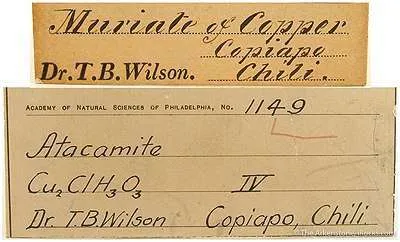 Muriate of Copper
Copiapo
Dr. T. B. Wilson. Chili.
ACADEMY OF NATURAL SCIENCES OF PHILADELPHIA, NO. 1149
Atacamite
Cu₂ClH₃O₃ IV
Dr. T.B. Wilson Copiapo, Chili